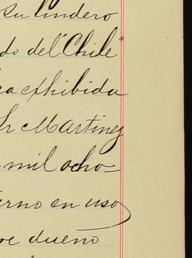 su lindero
do del "Chile"
a exhibida
Sr Martinez
mil ocho-
erno en uso
dueño